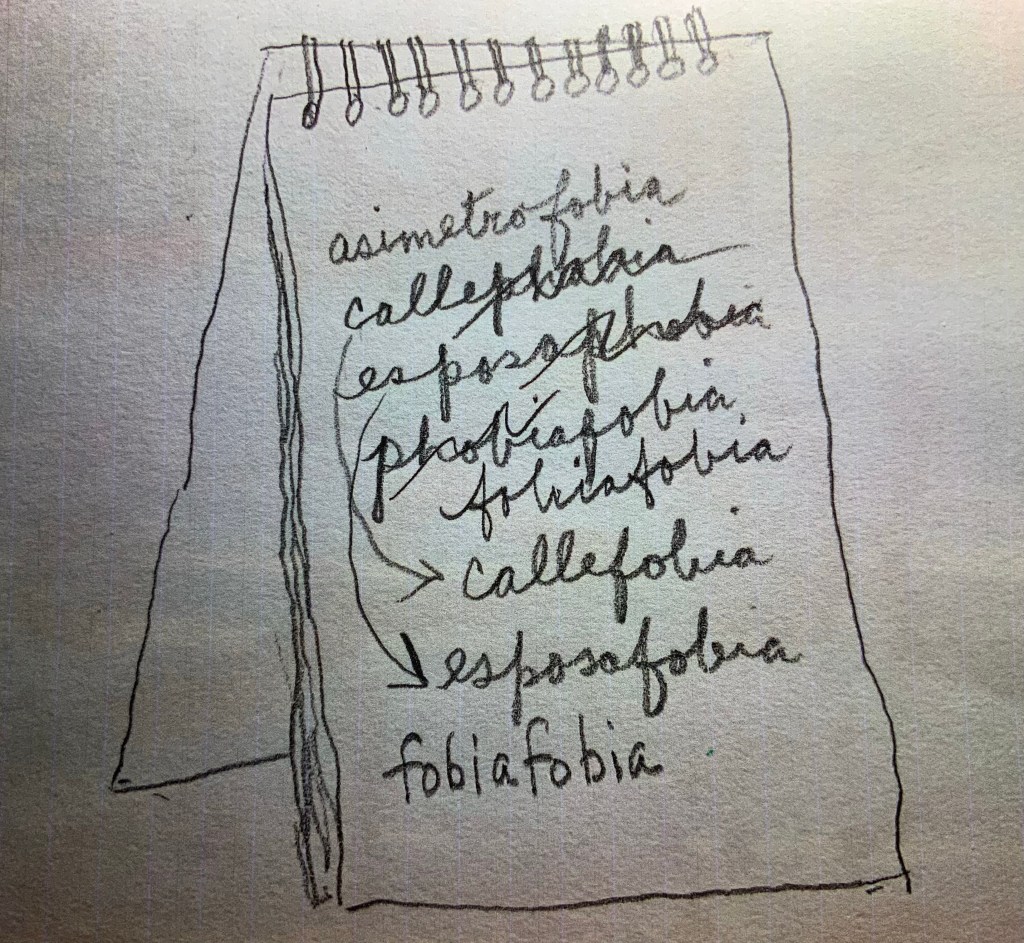 asimetrofobia
callephobia
esposaphobia
phobiafobia
fobiafobia
callefobia
esposafobia
fobiafobia